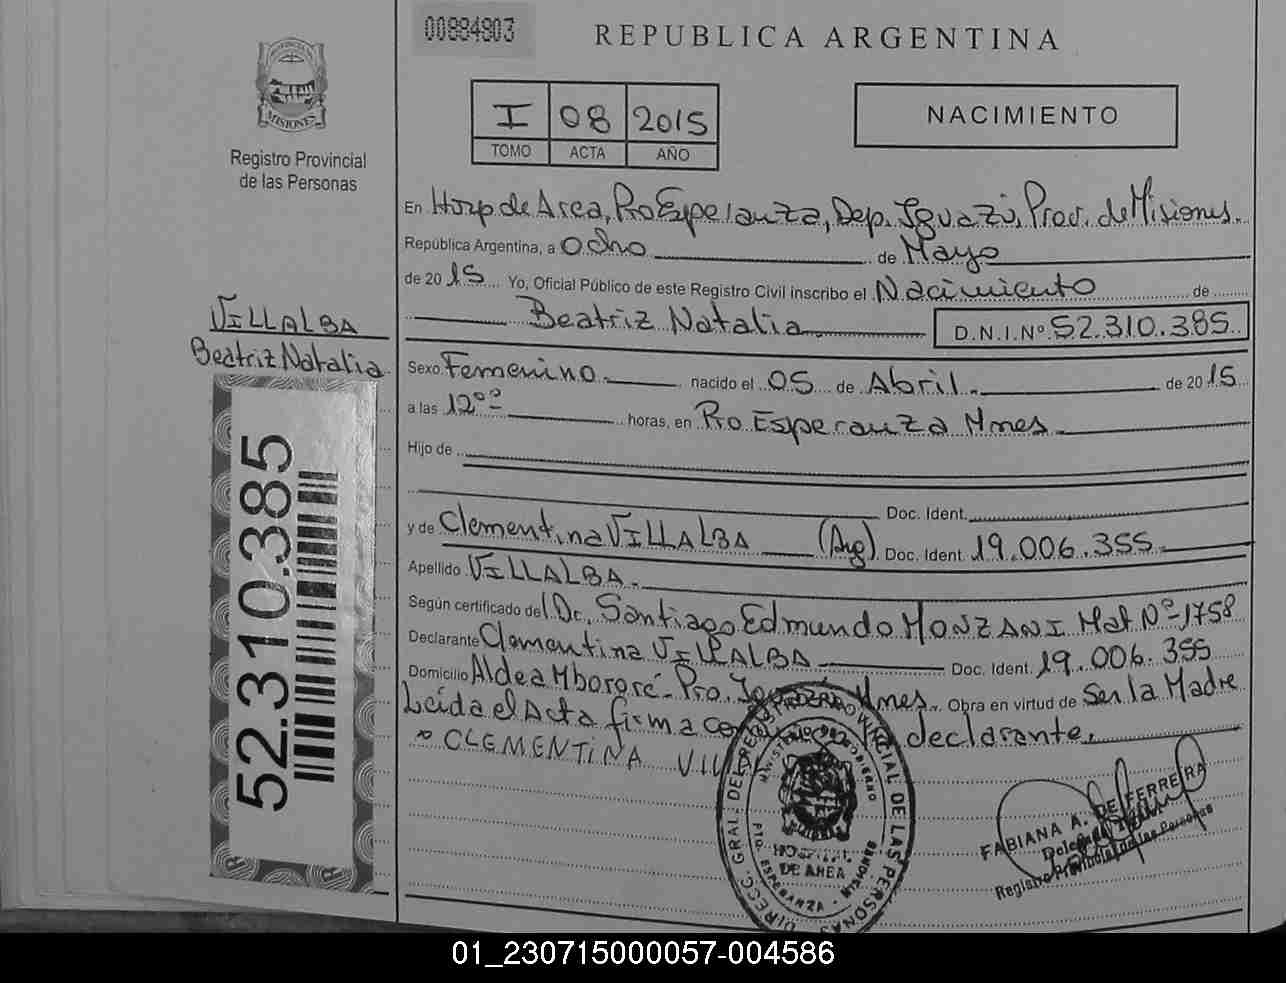 00884903
REPUBLICA ARGENTINA
PROVINCIA DE
MISIONES
Registro Provincial
de las Personas
I 08 2015
TOMO ACTA AÑO
NACIMIENTO
En Hosp. de Area, Pto Esperanza, Dep. Iguazú, Prov. de Misiones.
República Argentina, a ocho de Mayo
de 2015 Yo, Oficial Público de este Registro Civil inscribo el Nacimiento de
Beatriz Natalia D.N.I. Nº 52.310.385
VILLALBA
Beatriz Natalia
Sexo Femenino nacido el 05 de Abril de 2015
a las 12ºº horas, en Pto. Esperanza Mnes
Hijo de
Doc. Ident.
y de Clementina VILLALBA (Arg) Doc. Ident. 19.006.355
Apellido VILLALBA
Según certificado del Dr. Santiago Edmundo MONZANI Mat Nº 1758
Declarante Clementina VILLALBA Doc. Ident. 19.006.355
Domicilio Aldea Mbororé - Pto. Iguazú Mnes. Obra en virtud de Ser la Madre
Leída el Acta firma la declarante.
CLEMENTINA
52.310.385
DIRECC. GRAL. DEL REG. PROVINCIAL DE LAS PERSONAS
MINISTERIO DE GOBIERNO
HOSPITAL
DE AREA
PTO. ESPERANZA - MISIONES
FABIANA A. DE FERREIRA
Registro Provincial de las Personas
01_230715000057-004586